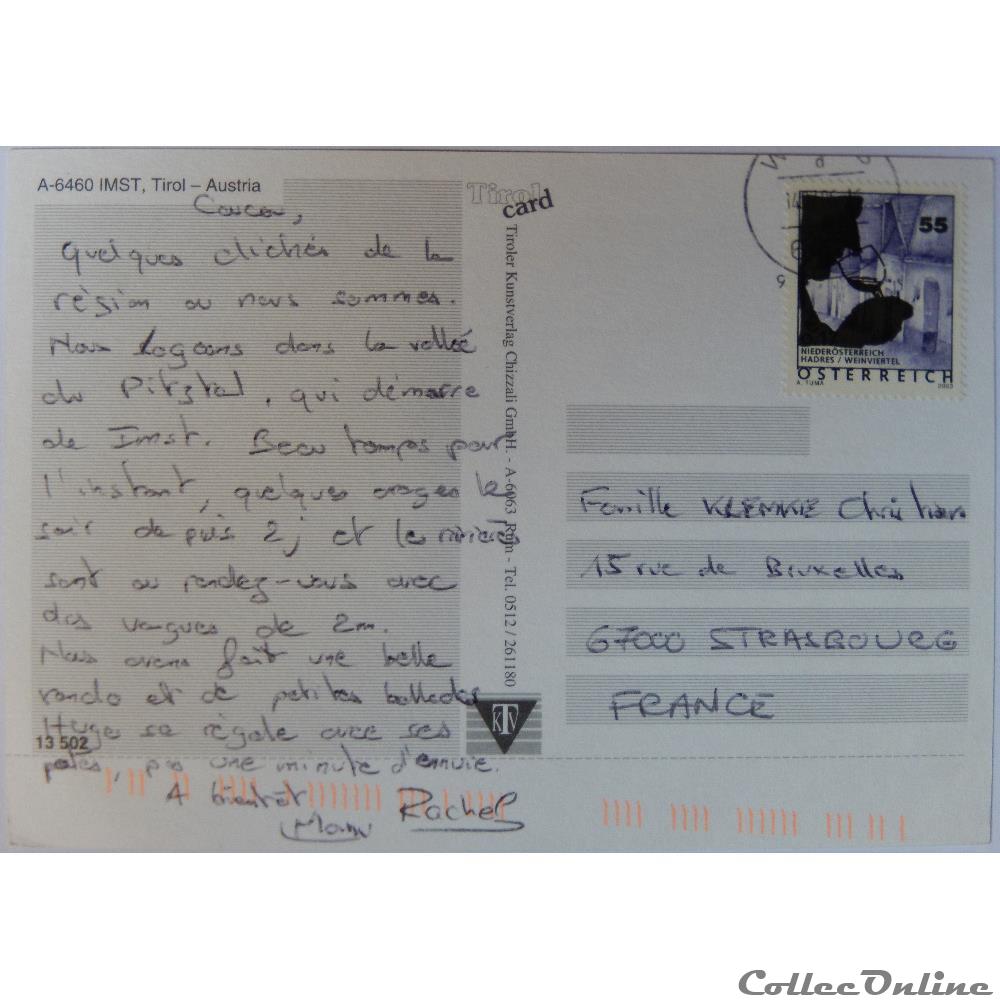 A-6460 IMST, Tirol – Austria
Coucou,
Quelques clichés de la
région ou nous sommes.
Nous logeons dans la vallée
du Pitztal, qui démarre
de Imst. Beau temps pour
l'instant, quelques orages le
soir depuis 2j et les rivières
sont au rendez-vous avec
des vagues de 2m.
Nous avons fait une belle
rando et de petites ballades
Hugo se régale avec ses
potes, pas une minute d'ennuie.
A bientôt
Rachel
13 502
Tirol
card
Tiroler Kunstverlag Chizzali GmbH. - A-6063 Rum - Tel. 0512 / 261180
KTV
55
NIEDERÖSTERREICH
HADRES / WEINVIERTEL
ÖSTERREICH
A. TUMA 2003
Famille Christian
15 rue de Bruxelles
67000 STRASBOURG
FRANCE
CollecOnline